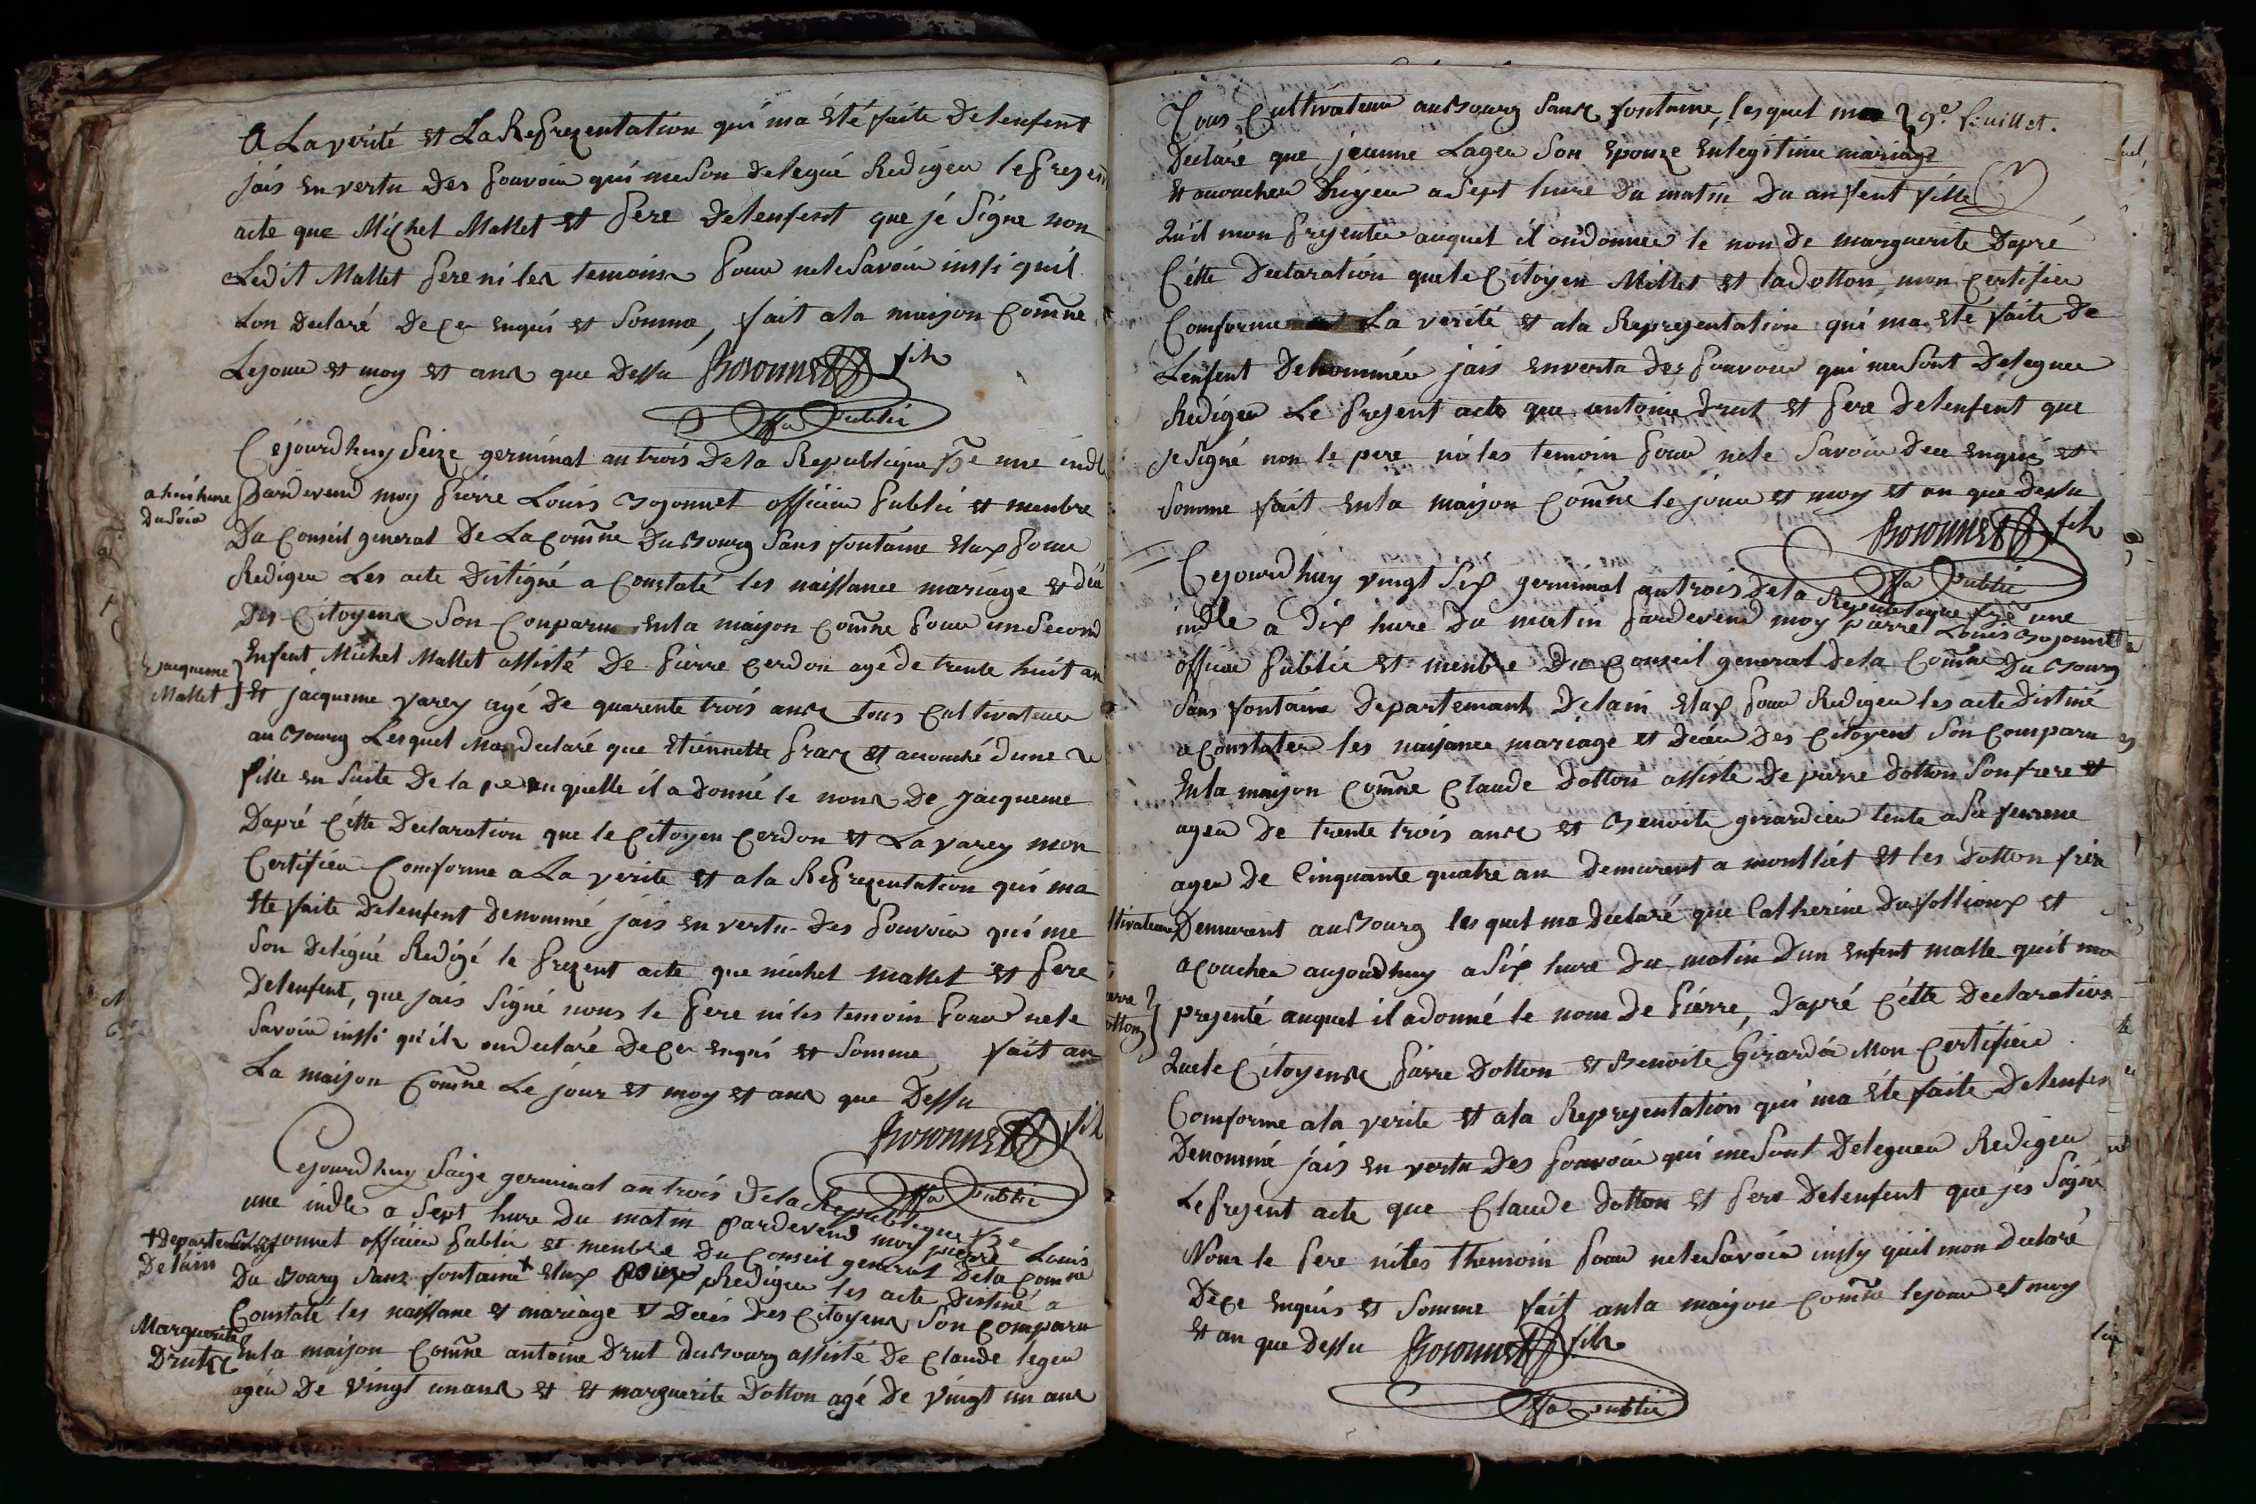 A La verité et La Represzentation qui ma été faite delenfent
jais en vertu des pouvoir qui meson delegué Rediger le presen
acte que Michel Mallet et pere delenfent que jé signe non
Ledit Mallet pere ni les temoins pour nele Savoir inssi quil
Lon declaré dece enquis et Somme, fait ala maison Comne
Lejour et moy et ans que dessu Bozonnet fils
offi Public
Cejourdhuy Seize germinal an trois dela Republique fse une indle
a huit hure
du Soir
Pardevend moy Pierre Louis Bozonnet officier Public et menbre
Du Conseil general De La Comne du Bourg Sans fontaine Elus pour
Rediger Les acte distigné a Constaté les naissance mariage et déce
Des Citoyens Son Conparu enla maison Comne pour un second
Enfent Michel Mallet assisté De Pierre Cerdon agé de trente huit an
Jacqueme
Mallet
Et jacqueme varey agé De quarente trois ans tous Cultivateur
au Bourg Lesquel Mon declaré que Etiennette fras et acouché dune
fille en Suite De la quelle il a donné le nons De Jacqueme
Dapré Cétte Declaration que le Citoyen Cerdon et La varey mon
Certifier Comforme a La verite et ala Represzentation qui ma
Ete faite Delenfent Denommé jais en vertu des pouvoir qui me
Son delégué Redigé le present acte que michel mallet et pere
Delenfent, que jais Signé nons le pere ni les temoin pour nele
Savoir inssi qu'ils ondeclaré Dece enqui et Somme fait an
La maison Comne Le jour et moy et ans que Dessu
Bozonnet fils
offi Public
Cejourdhuy Saize germinal an trois Dela Republique fse
une indle a Sept hure Du matin Pardevend moy pierre Louis
+ Departement
Delain
Bozonnet officier Public et menbre Du Conseil general Dela Comne
Du Bourg Sans fontaine + Elus pour Rediger les acte Distiné a
Constaté les naissane et mariage et Decés Des Citoyens Son Comparu
Marguerite
Drut
Enla maison Comne antoine Drut du Bourg assisté De Claude leger
agéu De vingt un ans et et marguerite Dotton agé De vingt un ans
9e feuillet.
Tous Cultivateur au Bourg Sans fontaine, lesquel mon
Declaré que jeanne Lager Son Epouze enlegitime mariage
Et acoucher Dhyer a Sept hure Du matin Du anfent fille
Quil mon presenter auquel il ondonner le non de marguerite Dapré
Cétte Declaration quele Citoyen Millet et la Dotton mon certifier
Comforme La verité et ala Represzentation qui ma été faite De
Lenfent Denommée jais en vertu des pouvoir qui mesont Deleguer
Rediger Le present acte que antoine Drut et pere Delenfent que
je Signé non le pere ni les temoin pour nele Savoir Dece enquis et
Somme fait enla maison Comne le jour et moy et an que Dessu
Bozonnet fils
offi Public
Cejourdhuy vingt Six germinal an trois Dela Republique fse une
indle a Dix hure Du matin Pardevend moy pierre Louis Bozonnet
officier Public et menbre Du Conseil general Dela Comne Du Bourg
Sans fontaine Departemant Delain Elus pour Rediger les acte Distiné
a Constater les naisance mariage et Décéu Des Citoyens Son Comparu
Enla maison Comne Claude Dotton assisté De pierre Dotton Son frere et
ageu De trente trois ans et Benoite girardier tente a Sa femme
ageu De Cinquante quatre an Demeurent a montliét et les Dotton frer
ltivateur
Demurent au Bourg lesquel ma Declaré que Catherine Dufollioux et
acoucher aujourdhuy a Six hure Du matin Dun enfent malle quil ma
ierre
otton
presenté auquel il adonné le nom De Pierre, Dapré Cétte Declaration
Quele Citoyens Pierre Dotton et Benoite Girardér Mon Certifier
Comforme ala verite et ala Represzentation qui ma été faite Delenfen
Denommé jais en vertu Des pouvoir qui mesont Deleguer Rediger
Le present acte que Claude Dotton et pere Delenfent que jes Signé
Nons le pere niles themoin pour nele Savoir inssy quil mon Declaré
Dece enquis et Somme fait anla maison Comne lejour et moy
Et an que Dessu Bozonnet fils
offi Public